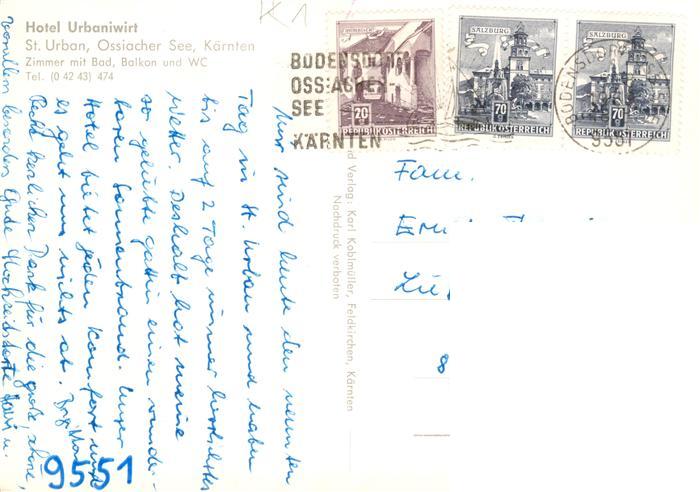 Hotel Urbaniwirt
St. Urban, Ossiacher See, Kärnten
Zimmer mit Bad, Balkon und WC
Tel. (0 42 43) 474
K 1
BODENSDORF
OSSIACHER
SEE
KÄRNTEN
20 g
REPUBLIK ÖSTERREICH
SALZBURG
70 g
REPUBLIK ÖSTERREICH
SALZBURG
70 g
REPUBLIK ÖSTERREICH
BODENSDORF
9551
Wir sind heute den neunten
Tag in St. Urban und haben
bis auf 2 Tage immer herrliches
Wetter. Deshalb hat meine
so geliebte Gattin einen wunder-
baren Sonnenbrand. Unser
Hotel bietet jeden Komfort und
es geht uns nichts ab.
Recht herzlichen Dank für die große, schöne,
vor allem besonders gute Hochzeitstorte
und Verlag: Karl Kobimüller, Feldkirchen, Kärnten
Nachdruck verboten
Fam.
8
9551